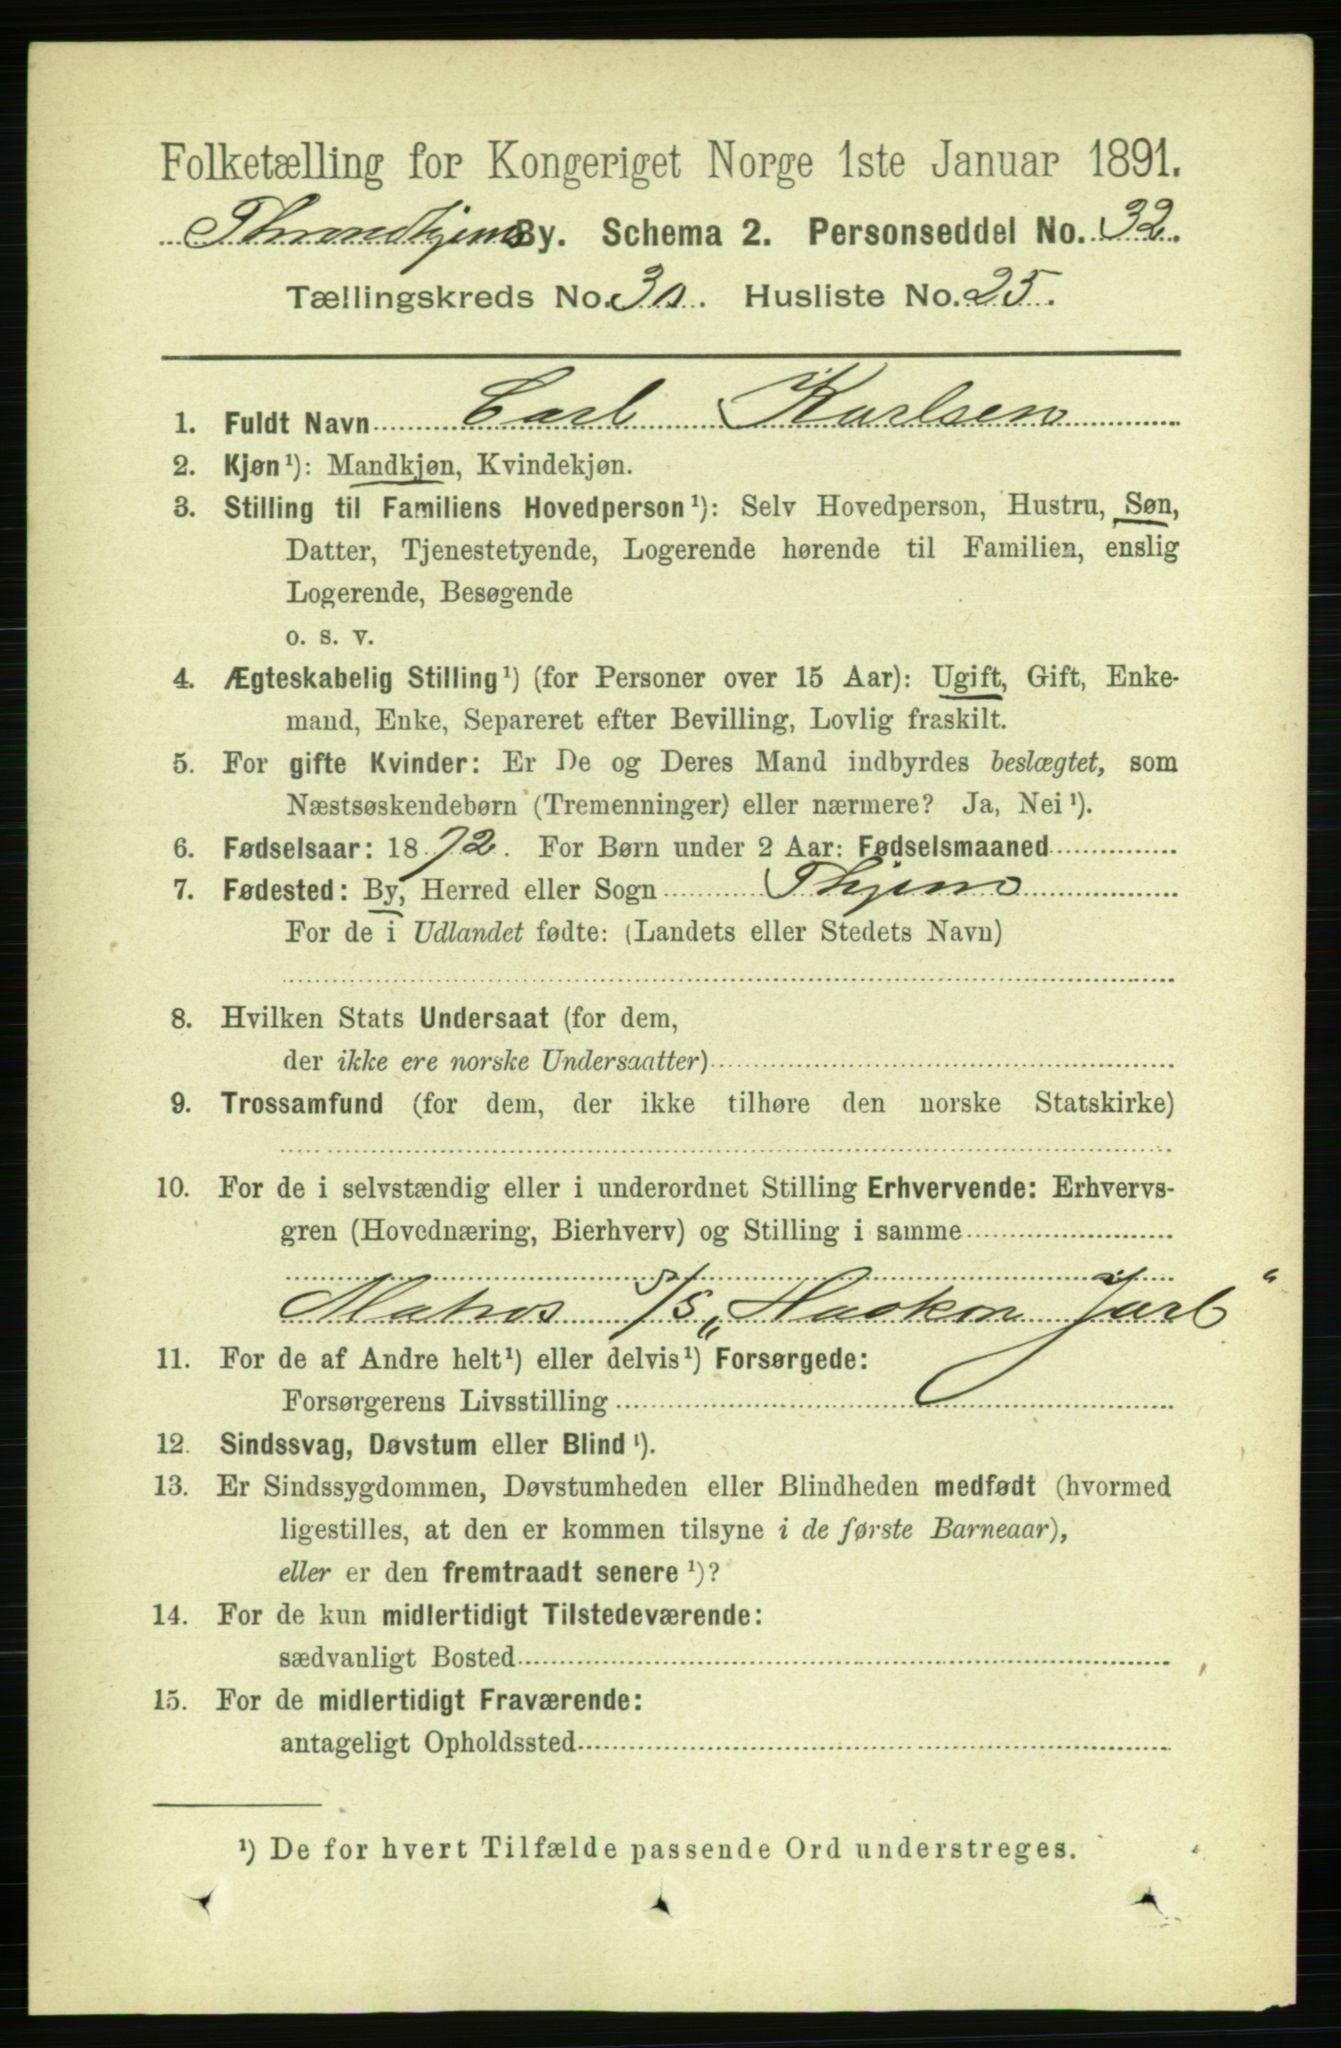 Folketælling for Kongeriget Norge 1ste Januar 1891.
Throndhjems By. Schema 2. Personseddel No. 32.
Tællingskreds No. 30. Husliste No. 25.
1. Fuldt Navn Carl Karlsen
2. Kjøn¹): Mandkjøn, Kvindekjøn.
3. Stilling til Familiens Hovedperson¹): Selv Hovedperson, Hustru, Søn,
Datter, Tjenestetyende, Logerende hørende til Familien, enslig
Logerende, Besøgende
o. s. v.
4. Ægteskabelig Stilling¹) (for Personer over 15 Aar): Ugift, Gift, Enke-
mand, Enke, Separeret efter Bevilling, Lovlig fraskilt.
5. For gifte Kvinder: Er De og Deres Mand indbyrdes beslægtet, som
Næstsøskendebørn (Tremenninger) eller nærmere? Ja, Nei¹).
6. Fødselsaar: 1872. For Børn under 2 Aar: Fødselsmaaned
7. Fødested: By, Herred eller Sogn Thjem
For de i Udlandet fødte: (Landets eller Stedets Navn)
8. Hvilken Stats Undersaat (for dem,
der ikke ere norske Undersaatter)
9. Trossamfund (for dem, der ikke tilhøre den norske Statskirke)
10. For de i selvstændig eller i underordnet Stilling Erhvervende: Erhvervs-
gren (Hovednæring, Bierhverv) og Stilling i samme
Matros S/S „Haakon Jarl“
11. For de af Andre helt¹) eller delvis¹) Forsørgede:
Forsørgerens Livsstilling
12. Sindssvag, Døvstum eller Blind¹).
13. Er Sindssygdommen, Døvstumheden eller Blindheden medfødt (hvormed
ligestilles, at den er kommen tilsyne i de første Barneaar),
eller er den fremtraadt senere¹)?
14. For de kun midlertidigt Tilstedeværende:
sædvanligt Bosted
15. For de midlertidigt Fraværende:
antageligt Opholdssted
¹) De for hvert Tilfælde passende Ord understreges.